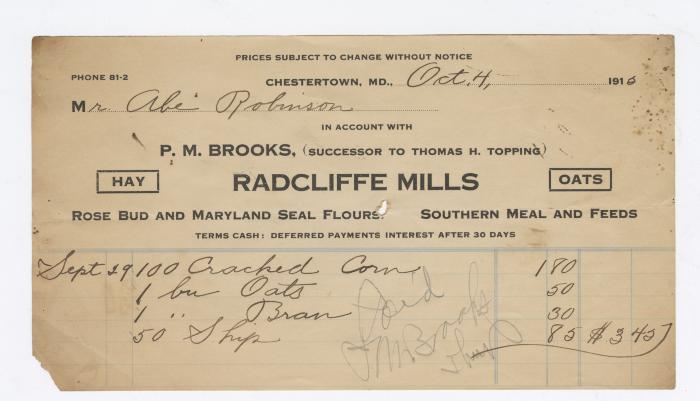 PRICES SUBJECT TO CHANGE WITHOUT NOTICE
PHONE 81-2
CHESTERTOWN, MD., Oct. 4, 1915
Mr Abe Robinson
IN ACCOUNT WITH
P. M. BROOKS, (SUCCESSOR TO THOMAS H. TOPPING)
HAY RADCLIFFE MILLS OATS
ROSE BUD AND MARYLAND SEAL FLOURS. SOUTHERN MEAL AND FEEDS
TERMS CASH: DEFERRED PAYMENTS INTEREST AFTER 30 DAYS
Sept 29 100 Cracked Corn 180
1 bu Oats 50
1 " Bran 30
50 Ship 85 $3.45
Pai'd
P.M. Brooks